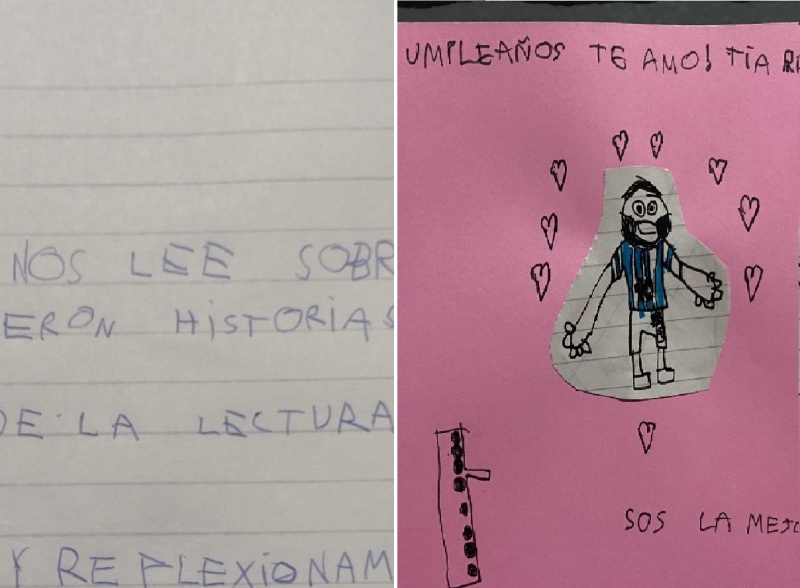 NOS LEE SOBR
ERON HISTORIAS
DE LA LECTURA
Y REFLEXIONAM
UMPLEAÑOS TE AMO! TIA RA
SOS LA MEJO